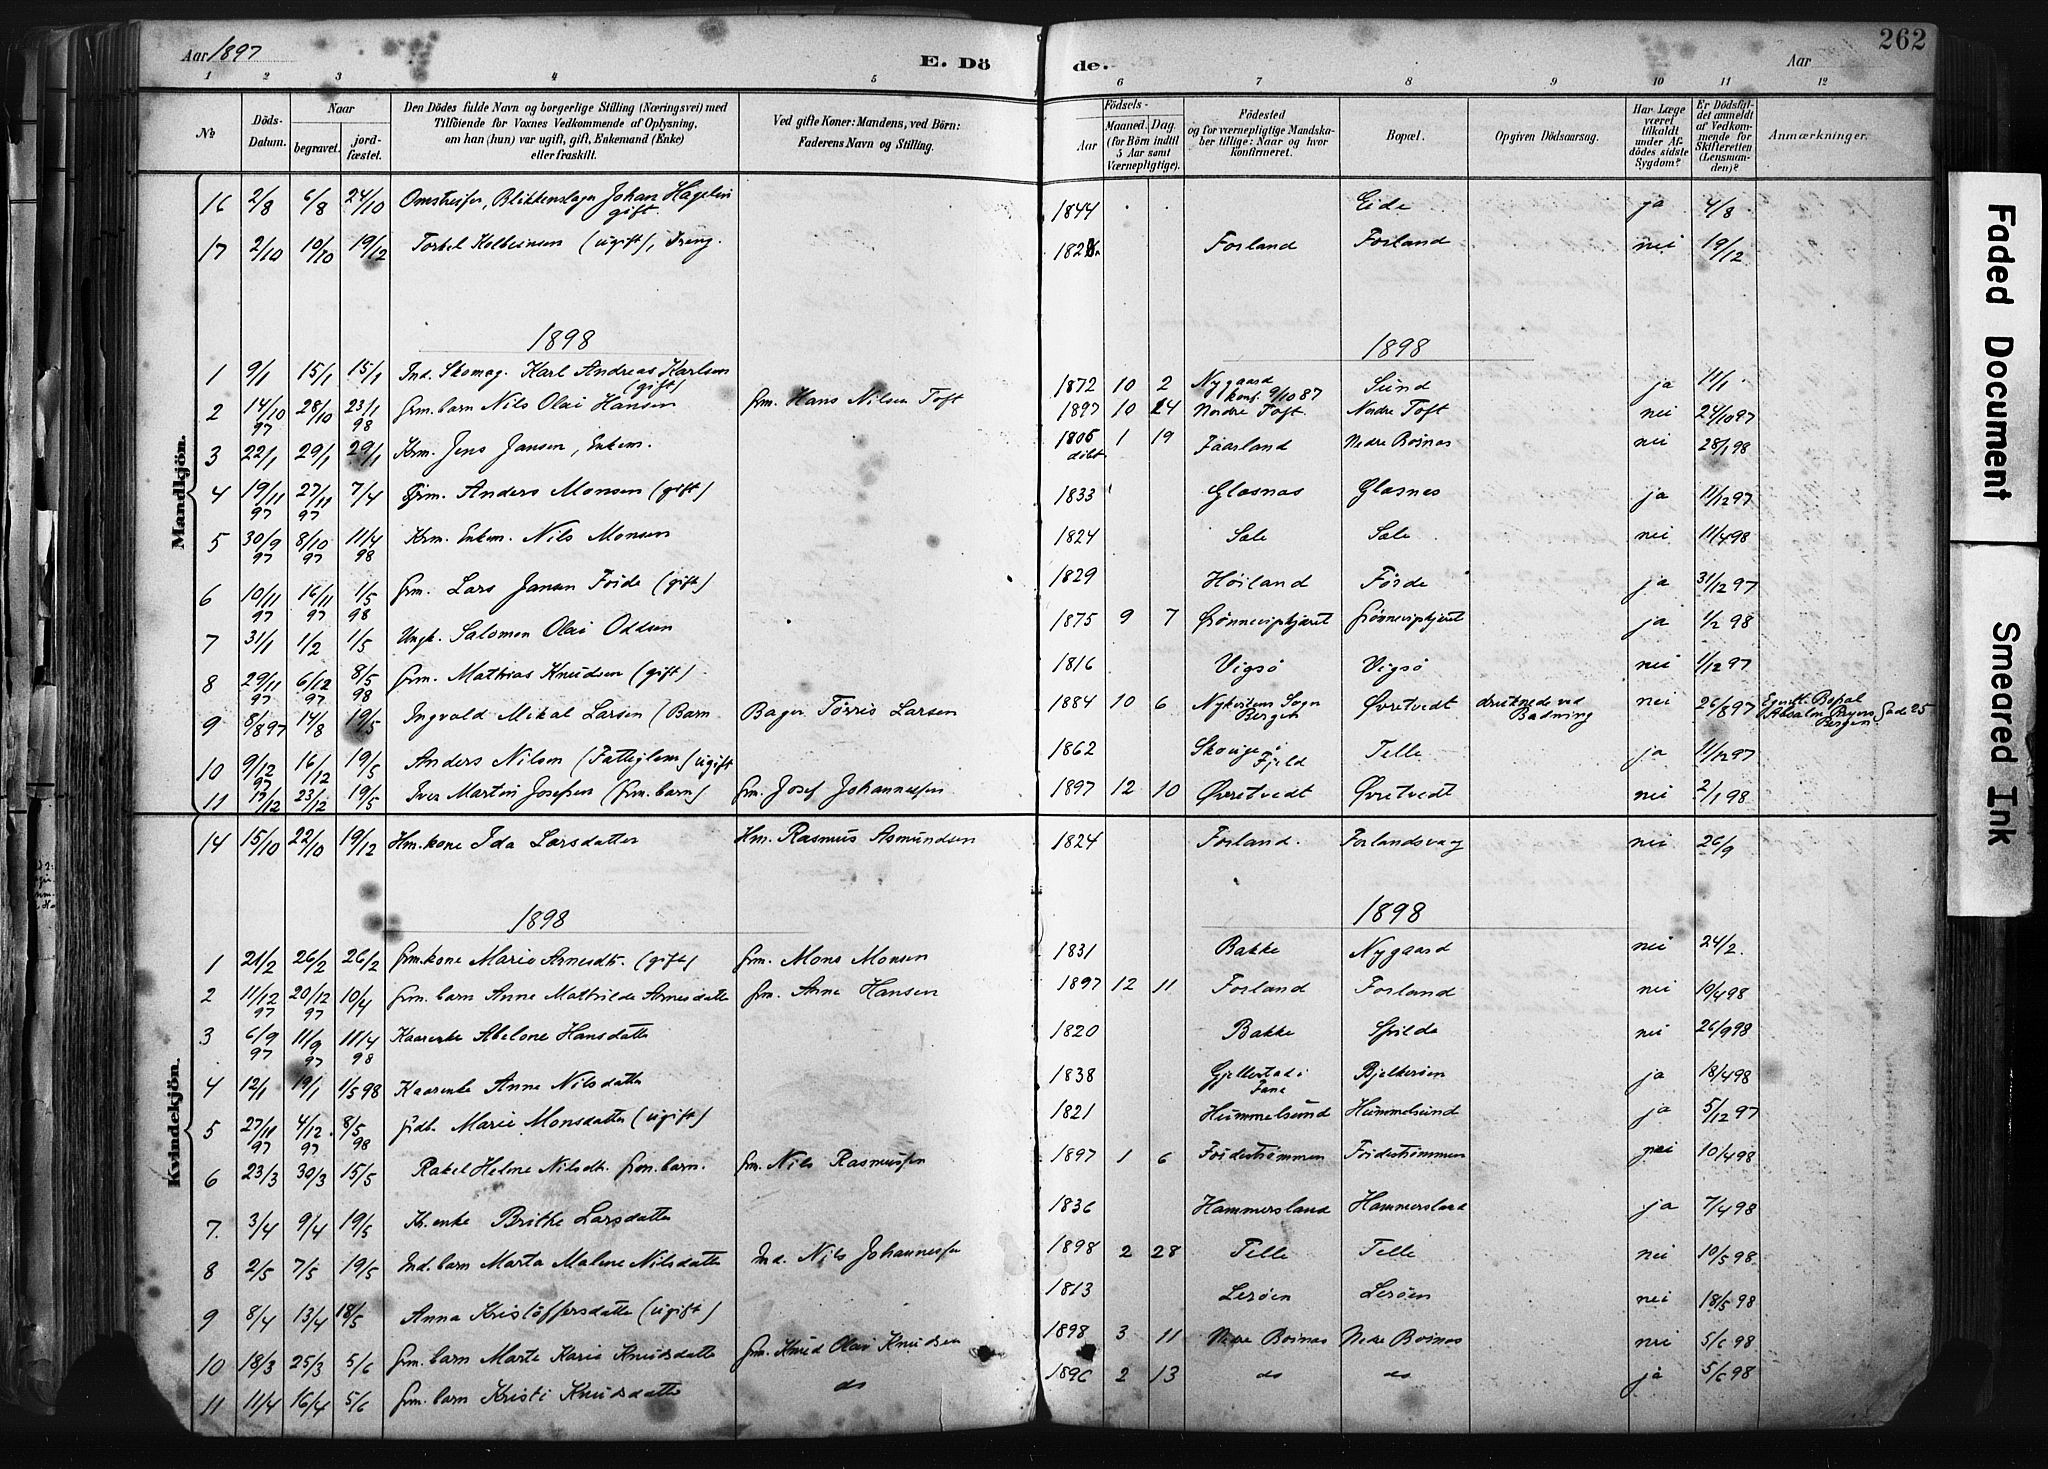 262
Aar 1897
E. Dö
de.
Aar
1 2 3 4 5 6 7 8 9 10 11 12
№
Döds-Datum.
Naar
begravet.
jord-fæstet.
Den Dödes fulde Navn og borgerlige Stilling (Næringsvei) med
Tilföiende for Voxnes Vedkommende af Oplysning,
om han (hun) var ugift, gift, Enkemand (Enke)
eller fraskilt.
Ved gifte Koner: Mandens, ved Börn:
Faderens Navn og Stilling.
Födsels-
Aar
Maaned. Dag.
(for Börn indtil
5 Aar samt
Værnepligtige).
Födested
og for værnepligtige Mandska-
ber tillige: Naar og hvor
konfirmeret.
Bopæl.
Opgiven Dödsaarsag.
Har Læge
været
tilkaldt
under Af-
dödes sidste
Sygdom?
Er Dödsfal-
det anmeldt
af Vedkom-
mende for
Skifteretten
(Lensman-
den)?
Anmærkninger.
Mandkjön.
16 2/8 6/8 24/10 Omstreifer, Blikkenslager Johan Hagelin gift. 1844 Eide ja 4/8
17 2/10 10/10 19/12 Torkel Kolbeinsen (ugift), Dreng. Forland Forland nei 19/12
1898 1898
1 9/1 15/1 15/1 Ind. Skomag. Karl Andreas Karlsen (gift) 1872 10 2 Nygaard konf. 9/10 87 Sund ja 11/1
2 14/10 97 28/10 23/1 98 Grm. barn Nils Olai Hansen Grm. Hans Nilsen Toft 1897 10 24 Nordre Toft Nordre Toft nei 24/10 97
3 22/1 29/1 29/1 Krm. Jens Jansen, Enkem. 1805 døbt 1 19 Faarland Nedre Boynas nei 28/1 98
4 19/11 97 27/11 97 7/4 Grm. Anders Monsen (gift) 1833 Glasnes Glesnes ja 11/12 97
5 30/9 97 8/10 97 11/4 98 Krm. Enkem. Nils Monsen 1824 Sale Sale nei 11/4 98
6 10/11 97 16/11 97 1/5 98 Grm. Lars Jansen Førde (gift) 1829 Høiland Førde ja 31/12 97
7 31/1 1/2 1/5 Ungk. Salomon Olai Oddsen 1875 9 7 ja 1/2 98
8 29/11 97 6/12 97 8/5 98 Grm. Mathias Knudsen (gift) 1816 Vigsø Vigsø nei 1/12 97
9 8/8 97 14/8 19/5 Ingvald Mikal Larsen (Barn Bager Tørris Larsen 1884 10 6 Nykirkens Sogn Bergen Øvretvedt druknede ved Badning nei 26/8 97 Bopæl Absalon Beyers Gade 25 Bergen
10 9/12 97 16/12 19/5 Anders Nilsen (Fattiglem) ugift 1862 Skouge i Fjeld Telle ja 11/12 97
11 17/12 23/12 19/5 Iver Martin Josefsen (Grm. barn) Grm. Josef Johannessen 1897 12 10 Øvretvedt Øvretvedt nei 2/1 98
Kvindekjön.
14 15/10 22/10 19/12 Hm. kone Ida Larsdatter Hm. Rasmus Asmundsen 1824 Forland. Forlandsvaag nei 26/9
1898 1898
1 21/2 26/2 26/2 Grm. kone Marie Arnesdtr. (gift) Grm. Mons Monsen 1831 Bakke Nygaard nei 24/2.
2 11/12 97 20/12 97 10/4 Grm. barn Anne Mathilde Arnesdatter Grm. Arne Hansen 1897 12 11 Forland Forland nei 10/4 98
3 6/9 97 11/9 97 11/4 98 Kaarenke Abelone Hansdatter 1820 Bakke Spilde nei 26/9 98
4 12/1 19/1 1/5 98 Kaarenke Anne Nilsdatter 1838 Gjellestad i Fane Bjelkerøen ja 18/4 98
5 27/11 97 4/12 97 8/5 98 Fidt. Marie Monsdatter (ugift) 1821 Hummelsund Hummelsund ja 5/12 97
6 23/3 30/3 15/5 Rakel Helene Nilsdtr. Grm. barn. Grm. Nils Rasmussen 1897 1 6 Førdestrømmen Førdestrømmen nei 10/4 98
7. 3/4 9/4 19/5 Kr. enke Brithe Larsdatter 1836 Hammersland Hammersland ja 7/4 98
8 2/5 7/5 19/5 Ind. barn Marta Malene Nilsdatter Ind. Nils Johannessen 1898 2 28 Telle Telle nei 10/5 98
9 8/4 13/4 18/5 Anna Kristoffersdatter (ugift) 1813 Lerøen Lerøen nei 18/5 98
10 18/3 25/3 5/6 Grm. barn Marte Karie Knudsdatter Grm. Knud Olai Knudsen 1898 3 11 Nedre Boynas Nedre Boynas nei 5/6 98
11 11/4 16/4 5/6 Grm. barn Kristi Knudsdatter do 1896 2 13 do do ja 5/6 98
Faded Document
Smeared Ink